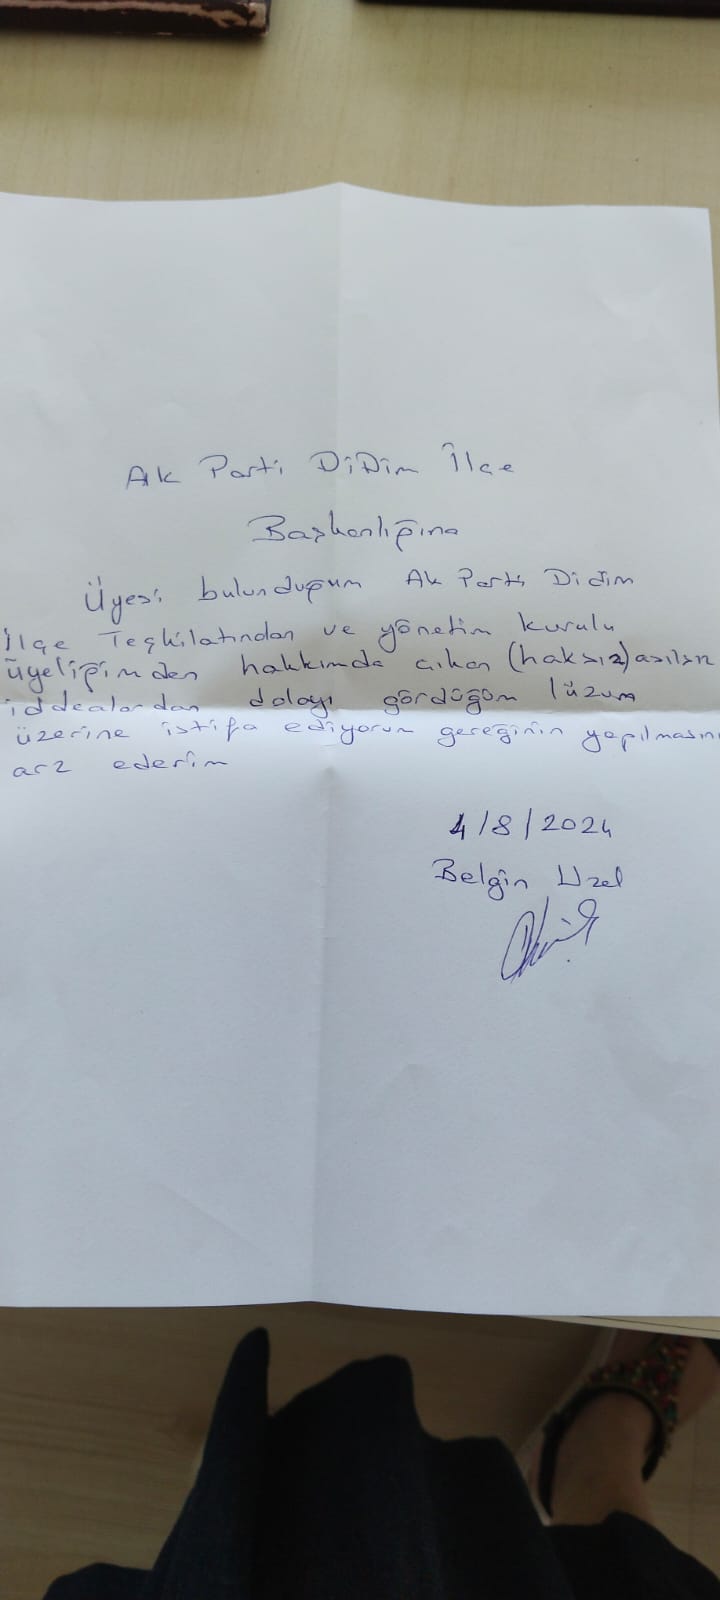 Ak Parti DiDim İlçe
Başkanlığına
Üyesi bulunduğum Ak Parti Didim
İlçe Teşkilatından ve yönetim kurulu
üyeliğimden hakkımda çıkan (haksız) asılsız
iddealardan dolayı gördüğüm lüzum
üzerine istifa ediyorum gereğinin yapılmasını
arz ederim
4/8/2024
Belgin Uzel